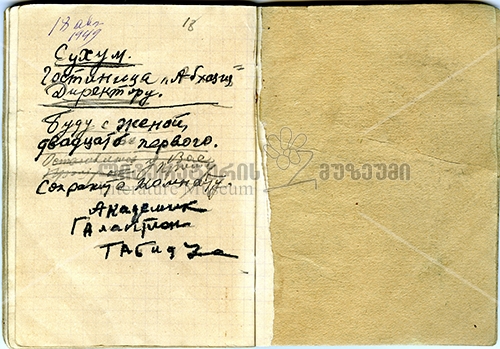 18 авг 18
1949
Сухум.
Гостиница „Абхазия"
Директору.
Буду с женой
двадцать первого.
у Вас
Сохраните комнату.
Академик
Галактион
Табидзе
ლიტერატურის მუზეუმი
Literature Museum